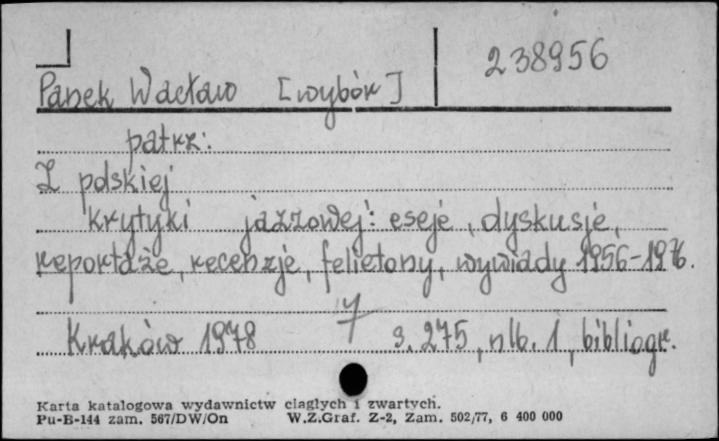 238956
Panek Wacław [wybór]
patrz:
Z polskiej
krytyki jazzowej: eseje, dyskusje,
reportaże, recenzje, felietony, wywiady 1956-1976.
7
Kraków 1978 s. 275, nlb. 1, bibliogr.
Karta katalogowa wydawnictw ciągłych i zwartych.
Pu-B-144 zam. 567/DW/On W.Z.Graf. Z-2, Zam. 502/77, 6 400 000